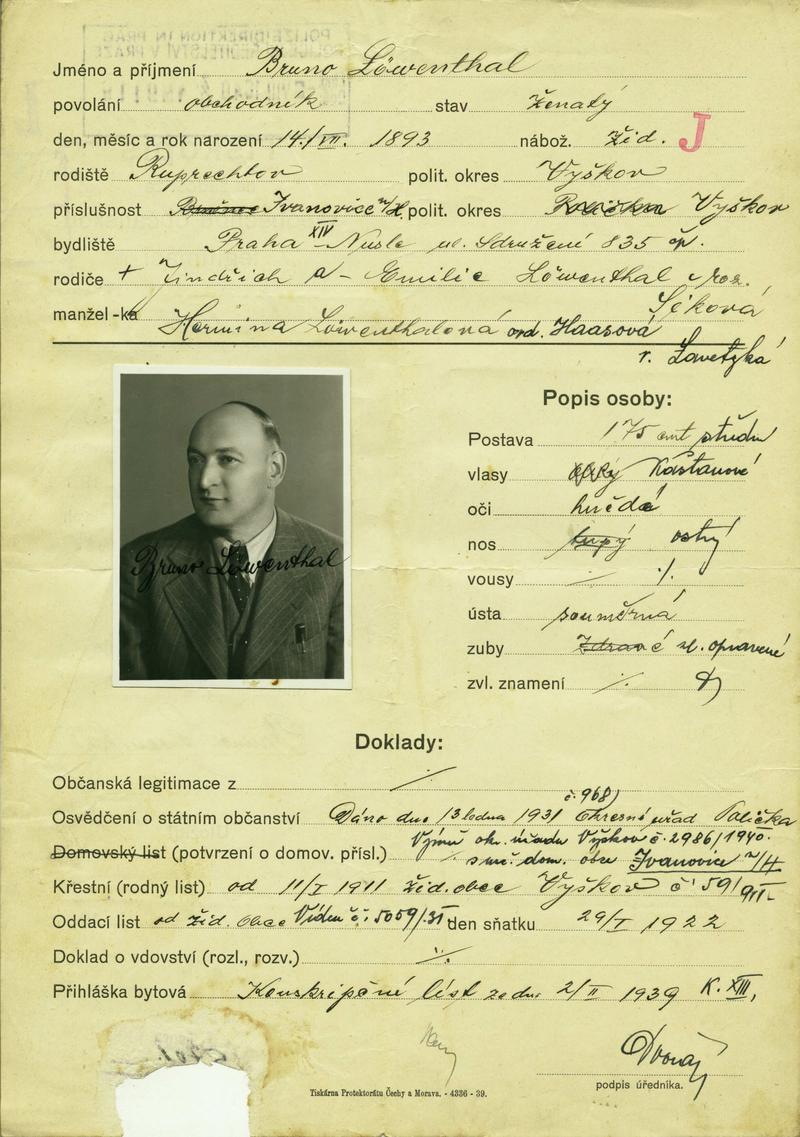 Jméno a příjmení Bruno Löwenthal
povolání obchodník stav ženatý
den, měsíc a rok narození 14./VII. 1893 nábož. žid. J
rodiště Ruprechtov polit. okres Vyškov
příslušnost Ivanovice n/H. polit. okres Polička Vyškov
bydliště Praha XIV Nusle ul. Sdružení 835 čp.
rodiče + Jindřich a Emilie Löwenthal roz.
Séková
manžel -ka Hermina Löwenthalová ovd. Haasová
r.
Popis osoby:
Postava 175 cmt střední
vlasy kaštanové
oči hnědé
nos tupý ostrý
vousy ./.
ústa souměrná
zuby zdravé zl. opravené
zvl. znamení ./.
Bruno Löwenthal
Doklady:
Občanská legitimace z ./.
č. 968)
Osvědčení o státním občanství Dáno dne 13 ledna 1931 Okresní úřad Polička
Výměr okr. úřadu Vyškov č. 2986/1940.
Domovský list (potvrzení o domov. přísl.) ./. dom. obce Ivanovice n/H
Křestní (rodný list) od 11/I 1911 žid. obec Vyškov č 59/911
Oddací list od žid. obce Vídeň č. 5059/31 den sňatku 29/I 1922
Doklad o vdovství (rozl., rozv.) ./.
Přihláška bytová Konskripční list ze dne 2/II 1939 K. XIII,
Tiskárna Protektorátu Čechy a Morava. - 4336 - 39.
podpis úředníka.